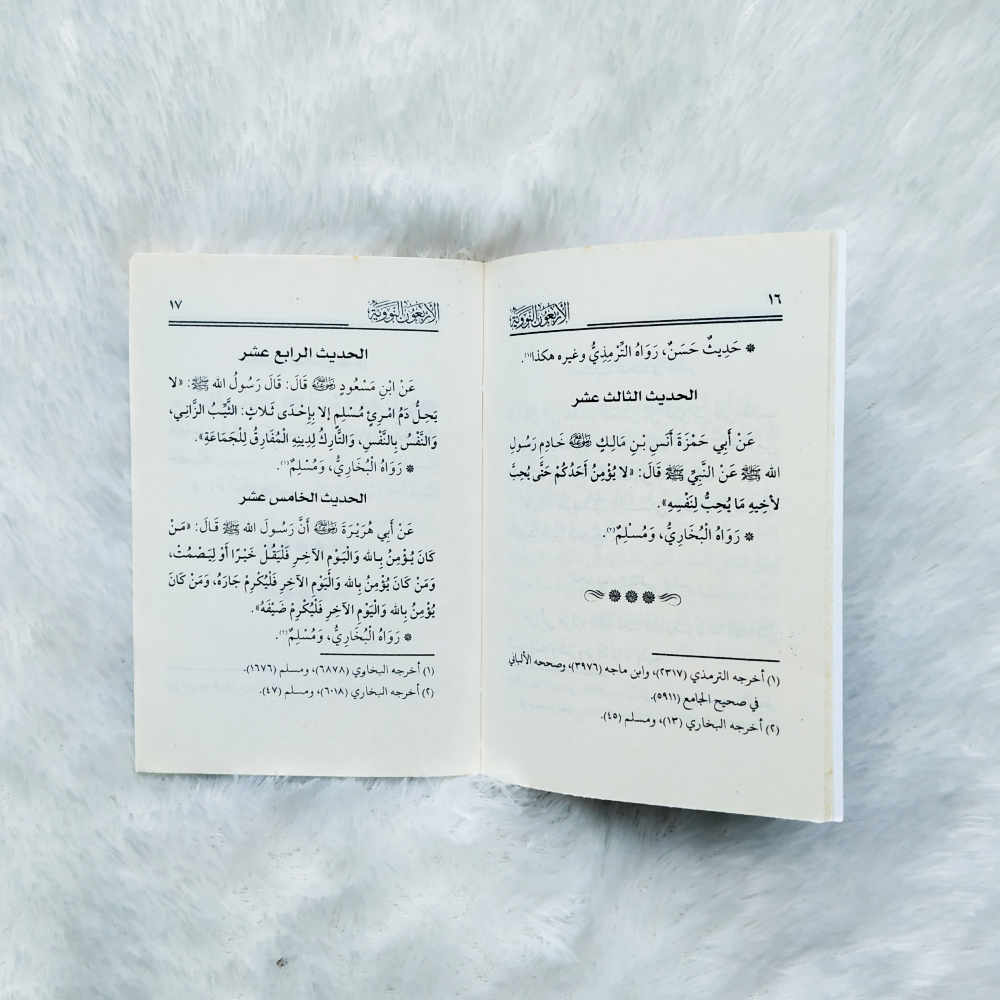 ١٦
الأربعون النووية
* حَدِيثٌ حَسَنٌ، رَوَاهُ التِّرْمِذِيُّ وغيره هكذا(١).
الحديث الثالث عشر
عَنْ أَبِي حَمْزَةَ أَنَسِ بْنِ مَالِكٍ رضي الله عنه خَادِمِ رَسُولِ
الله ﷺ عَنْ النَّبِيِّ ﷺ قَالَ: «لا يُؤْمِنُ أَحَدُكُمْ حَتَّى يُحِبَّ
لأخِيهِ مَا يُحِبُّ لِنَفْسِهِ».
* رَوَاهُ الْبُخَارِيُّ، وَمُسْلِمٌ(٢).
(١) أخرجه الترمذي (٢٣١٧)، وابن ماجه (٣٩٧٦)، وصححه الألباني
في صحيح الجامع (٥٩١١).
(٢) أخرجه البخاري (١٣)، ومسلم (٤٥).
الأربعون النووية
١٧
الحديث الرابع عشر
عَنْ ابْنِ مَسْعُودٍ رضي الله عنه قَالَ: قَالَ رَسُولُ الله ﷺ: «لا
يَحِلُّ دَمُ امْرِئٍ مُسْلِمٍ إلا بِإِحْدَى ثَلاثٍ: الثَّيِّبُ الزَّانِي،
وَالنَّفْسُ بِالنَّفْسِ، وَالتَّارِكُ لِدِينِهِ الْمُفَارِقُ لِلْجَمَاعَةِ».
* رَوَاهُ الْبُخَارِيُّ، وَمُسْلِمٌ(١).
الحديث الخامس عشر
عَنْ أَبِي هُرَيْرَةَ رضي الله عنه أَنَّ رَسُولَ الله ﷺ قَالَ: «مَنْ
كَانَ يُؤْمِنُ بِالله وَالْيَوْمِ الآخِرِ فَلْيَقُلْ خَيْرًا أَوْ لِيَصْمُتْ،
وَمَنْ كَانَ يُؤْمِنُ بِالله وَالْيَوْمِ الآخِرِ فَلْيُكْرِمْ جَارَهُ، وَمَنْ كَانَ
يُؤْمِنُ بِالله وَالْيَوْمِ الآخِرِ فَلْيُكْرِمْ ضَيْفَهُ».
* رَوَاهُ الْبُخَارِيُّ، وَمُسْلِمٌ(٢).
(١) أخرجه البخاوي (٦٨٧٨)، ومسلم (١٦٧٦).
(٢) أخرجه البخاري (٦٠١٨)، ومسلم (٤٧).